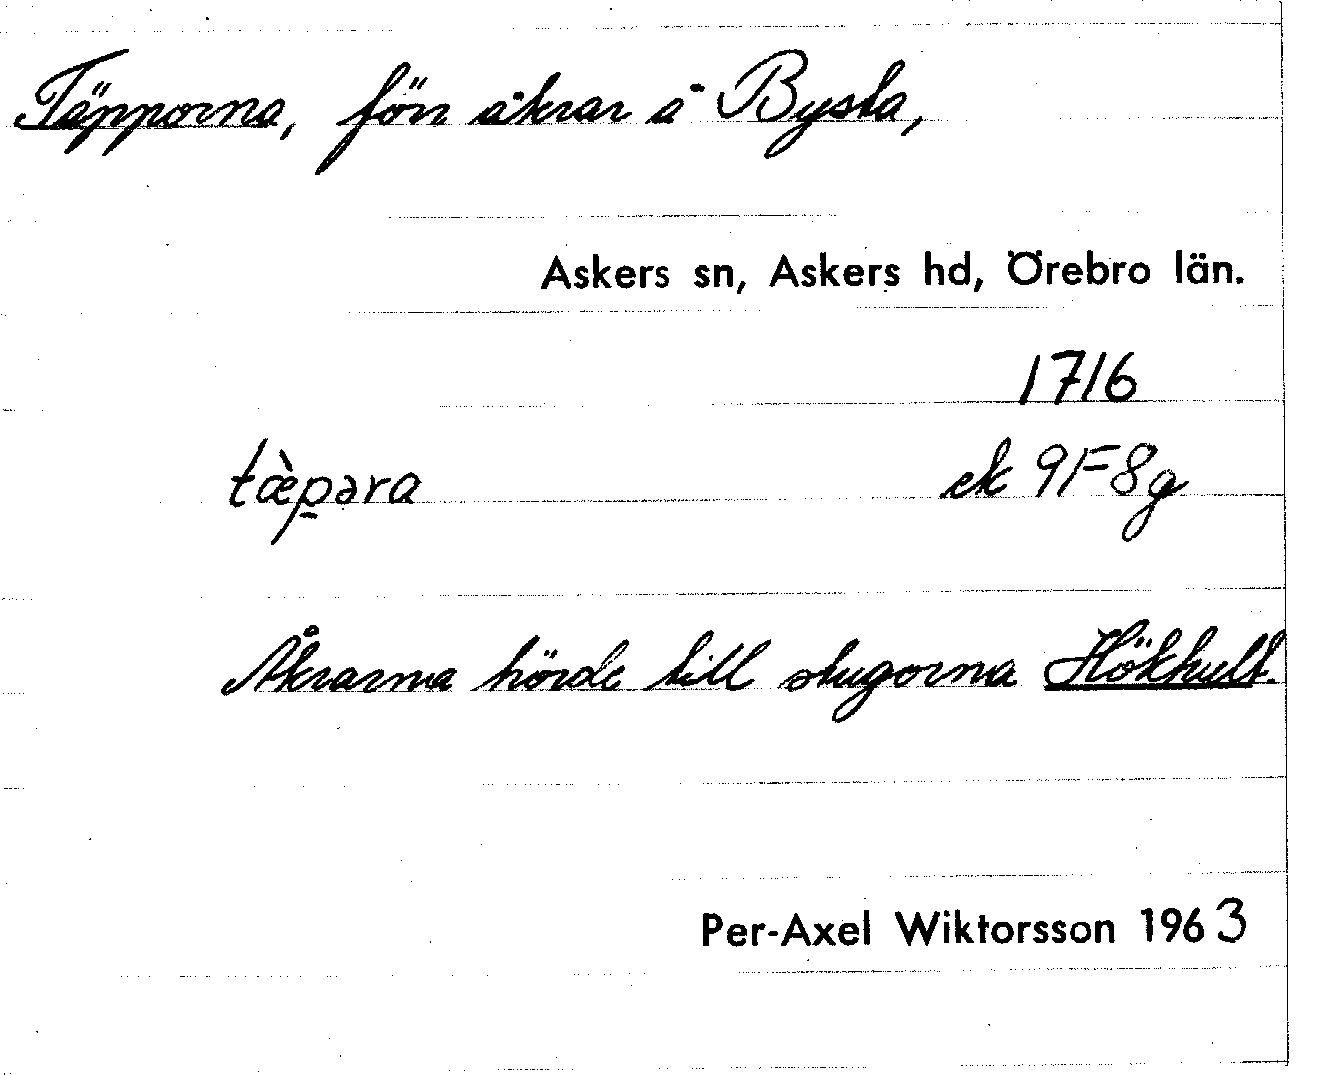 Täpporna, förr åkrar å Bysta,
Askers sn, Askers hd, Örebro län.
1716
tæ̀p̱əra
ek 9F8g
Åkrarna hörde till stugorna Hökhult.
Per-Axel Wiktorsson 1963